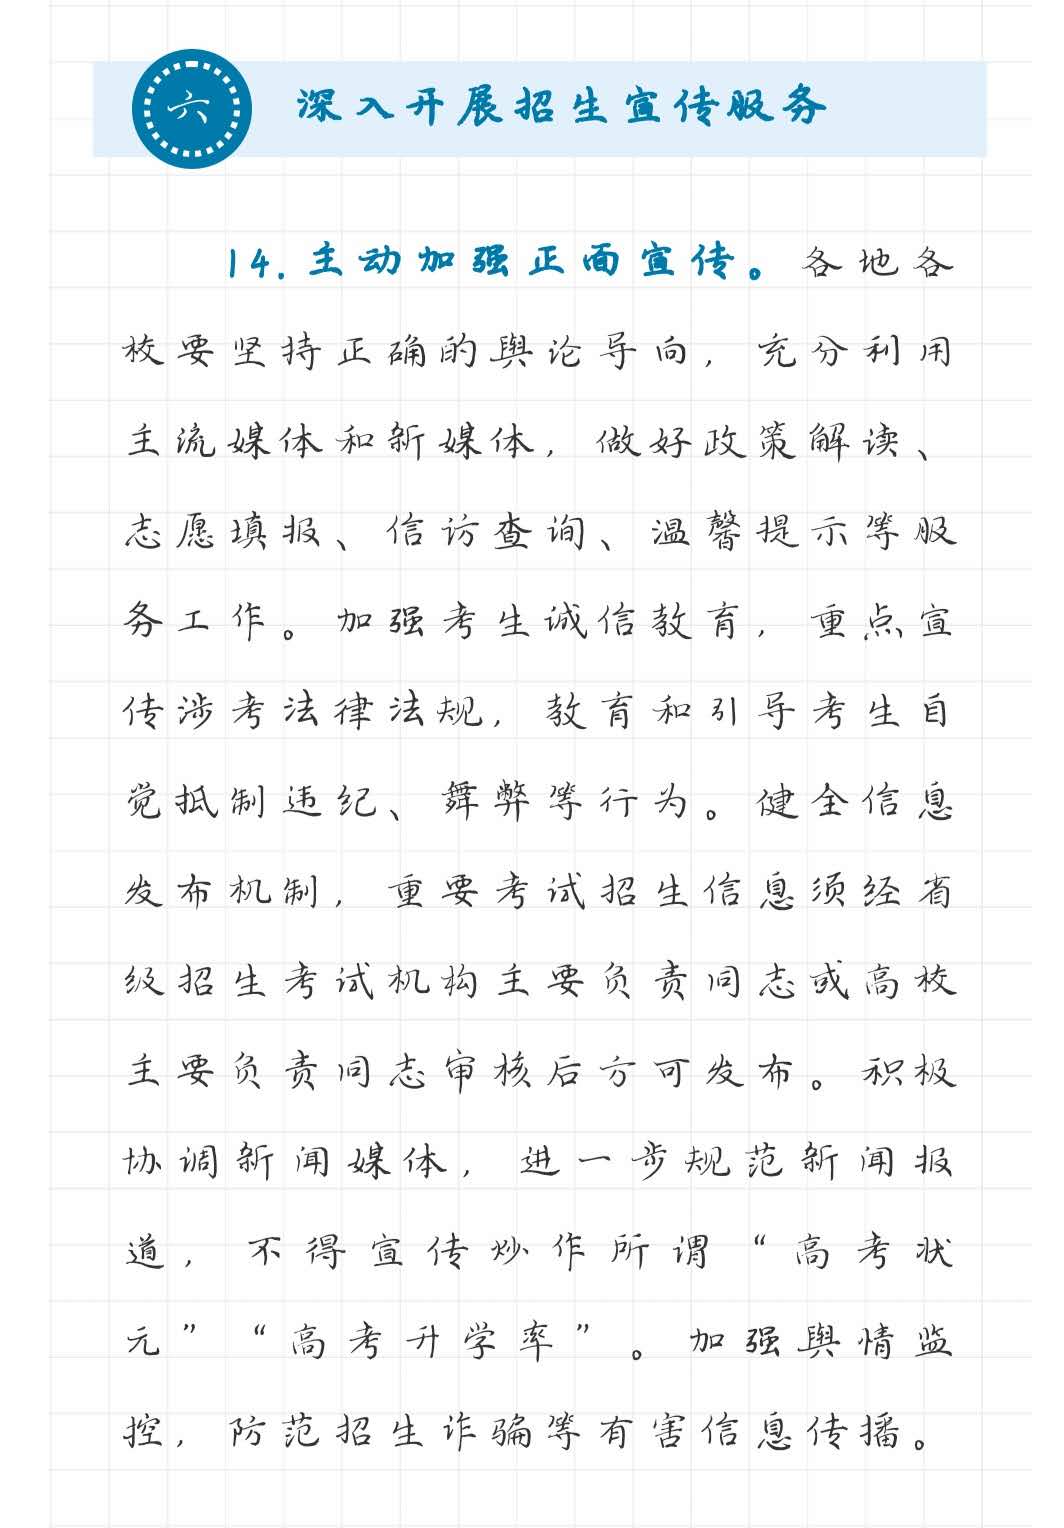 六 深入开展招生宣传服务
14.主动加强正面宣传。各地各
校要坚持正确的舆论导向，充分利用
主流媒体和新媒体，做好政策解读、
志愿填报、信访查询、温馨提示等服
务工作。加强考生诚信教育，重点宣
传涉考法律法规，教育和引导考生自
觉抵制违纪、舞弊等行为。健全信息
发布机制，重要考试招生信息须经省
级招生考试机构主要负责同志或高校
主要负责同志审核后方可发布。积极
协调新闻媒体，进一步规范新闻报
道，不得宣传炒作所谓“高考状
元”“高考升学率”。加强舆情监
控，防范招生诈骗等有害信息传播。